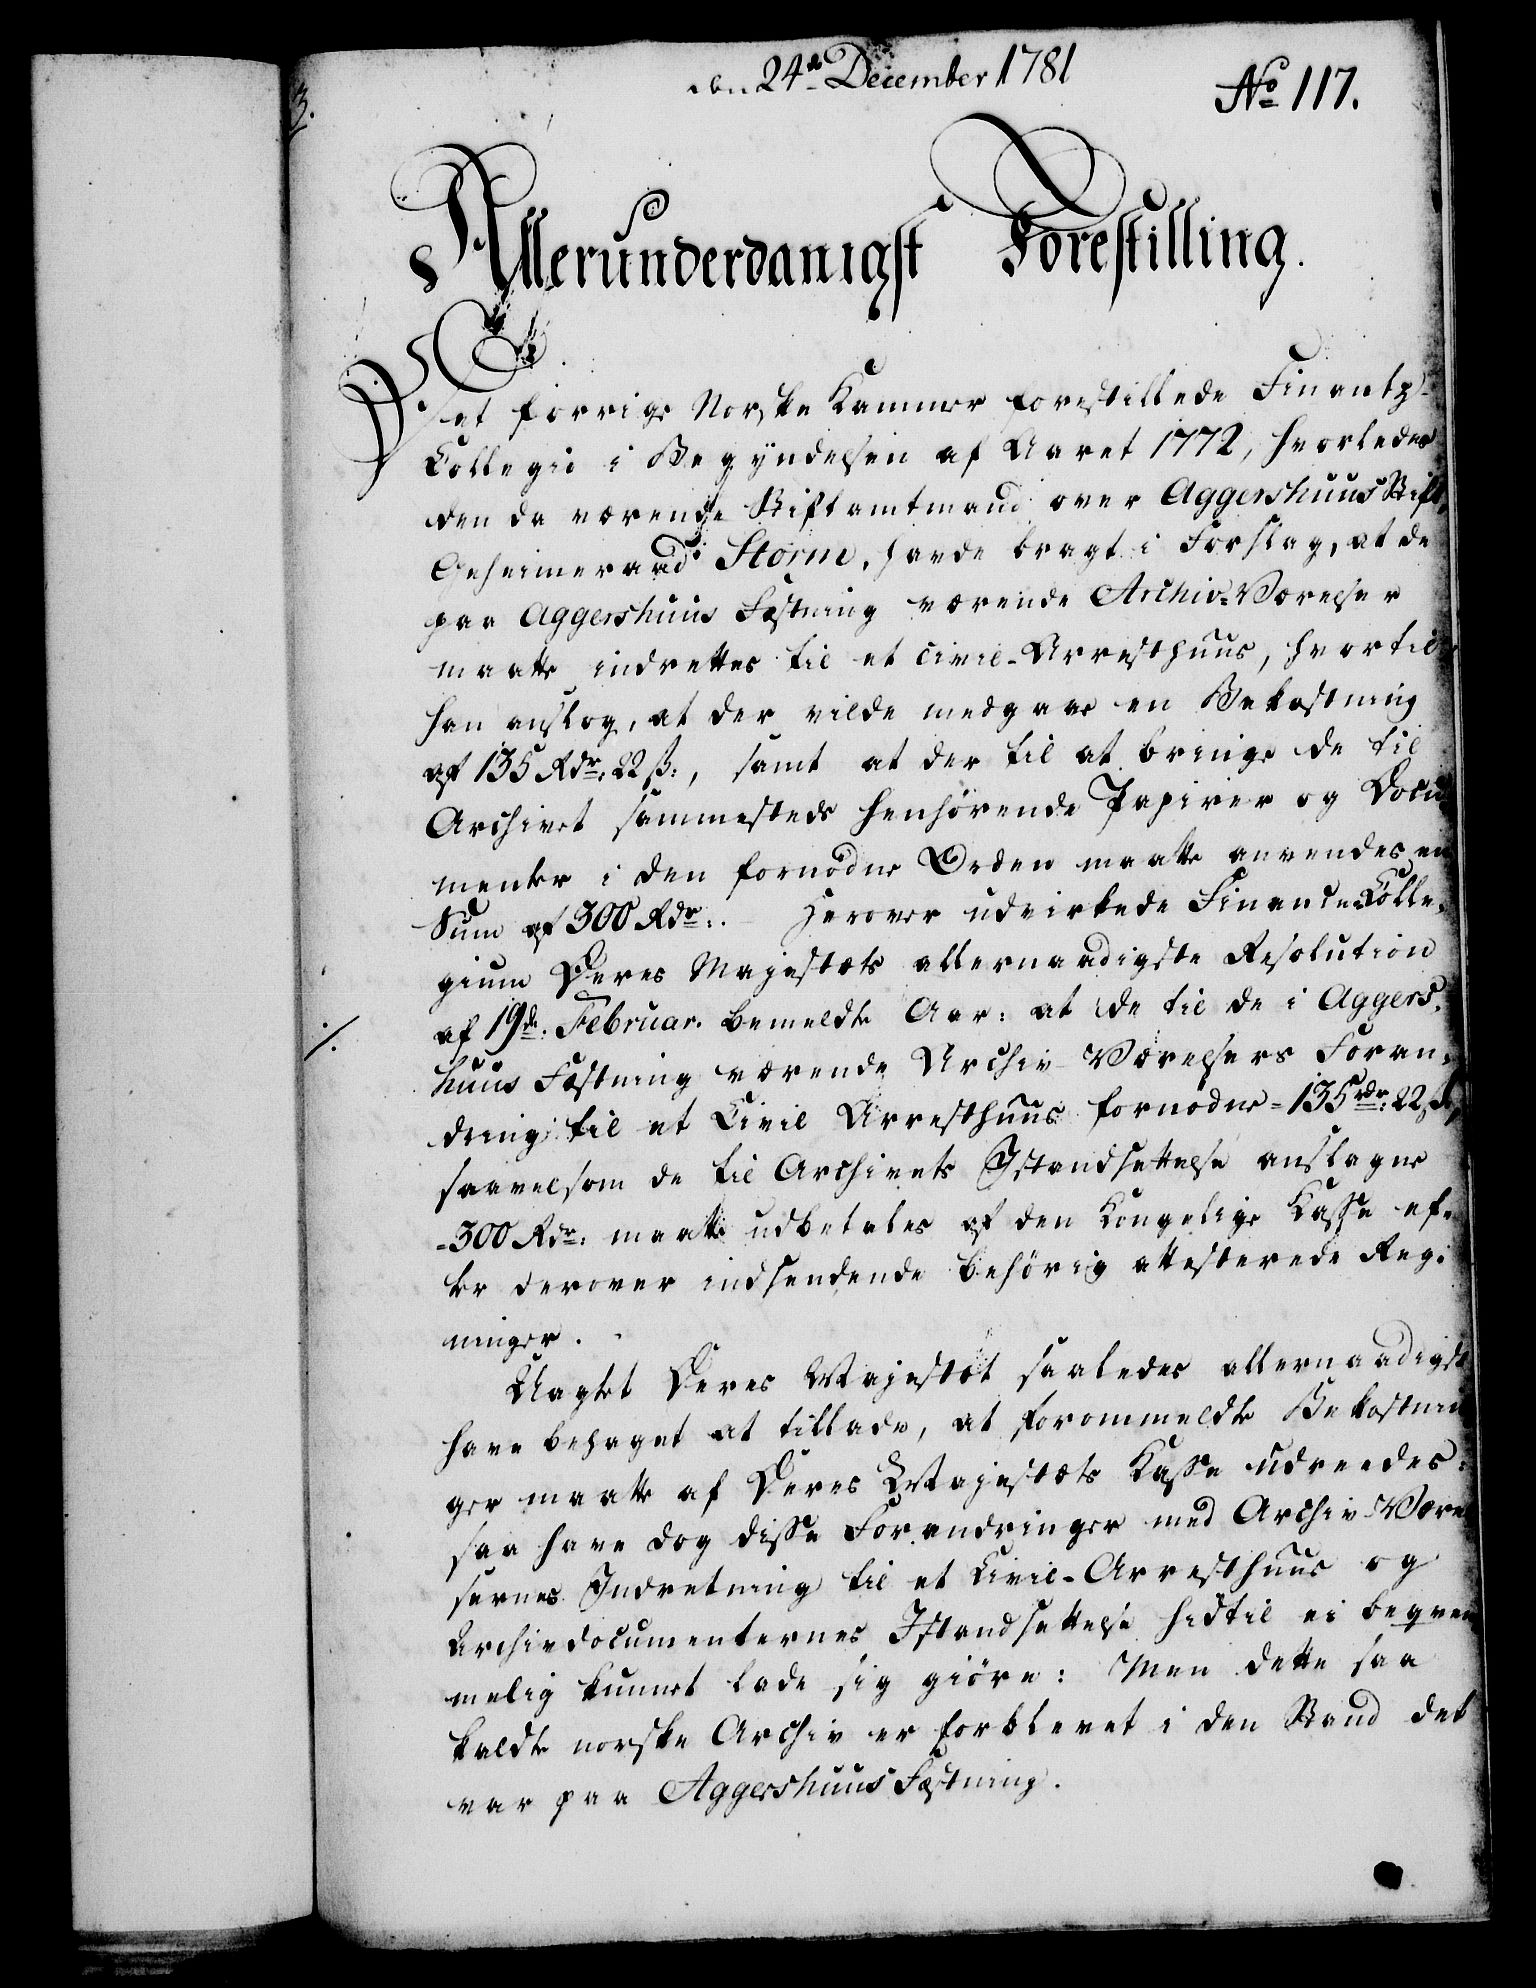 den 24de December 1781
No 117.
Allerunderdanigst Forestilling.
Det forrige Norske Kammer forestillede Finantz-
Collegio i Begyndelsen af Aaret 1772, hvorledes
den da værende Stiftamtmand over Aggershuus Stift,
Geheimeraad Storm, havde bragt i Forslag, at de
paa Aggershuus Fæstning værende Archiv-Værelser
maatte indrettes til et Civil-Arresthuus, hvortil
han anslog, at der vilde medgaae en Bekostning
af 135 Rdr: 22 ß:, samt at der til at bringe de til
Archivet sammesteds henhørende Papirer og Docu-
menter i den fornødne Orden maatte anvendes en
Sum af 300 Rdr:. Herover udvirkede Finance-Colle-
gium Deres Majestæts allernaadigste Resolution
af 19de Februar. bemeldte Aar: at de til de i Aggers-
huus Fæstning værende Archiv-Værelsers Foran-
dring til et Civil Arresthuus fornødne 135 rdr: 22 ß,
saavelsom de til Archivets Istandsættelse anslagne
300 Rdr: maatte udbetales af den Kongelige Kasse ef-
ter derover indsendende behørig attesterede Reg-
ninger.
Uagtet Deres Majestæt saaledes allernaadigst
have behaget at tillade, at forommeldte Bekostnin
ger maatte af Deres Majestæts Kasse udreedes:
saa have dog disse Forandringer med Archiv-Værel
sernes Indretning til et Civil-Arresthuus og
Archivdocumenternes Istandsættelse hidtil ei beqvem
melig kunnet lade sig giøre: Men dette saa
kaldte norske Archiv er forblevet i den Stand det
var paa Aggershuus Fæstning.